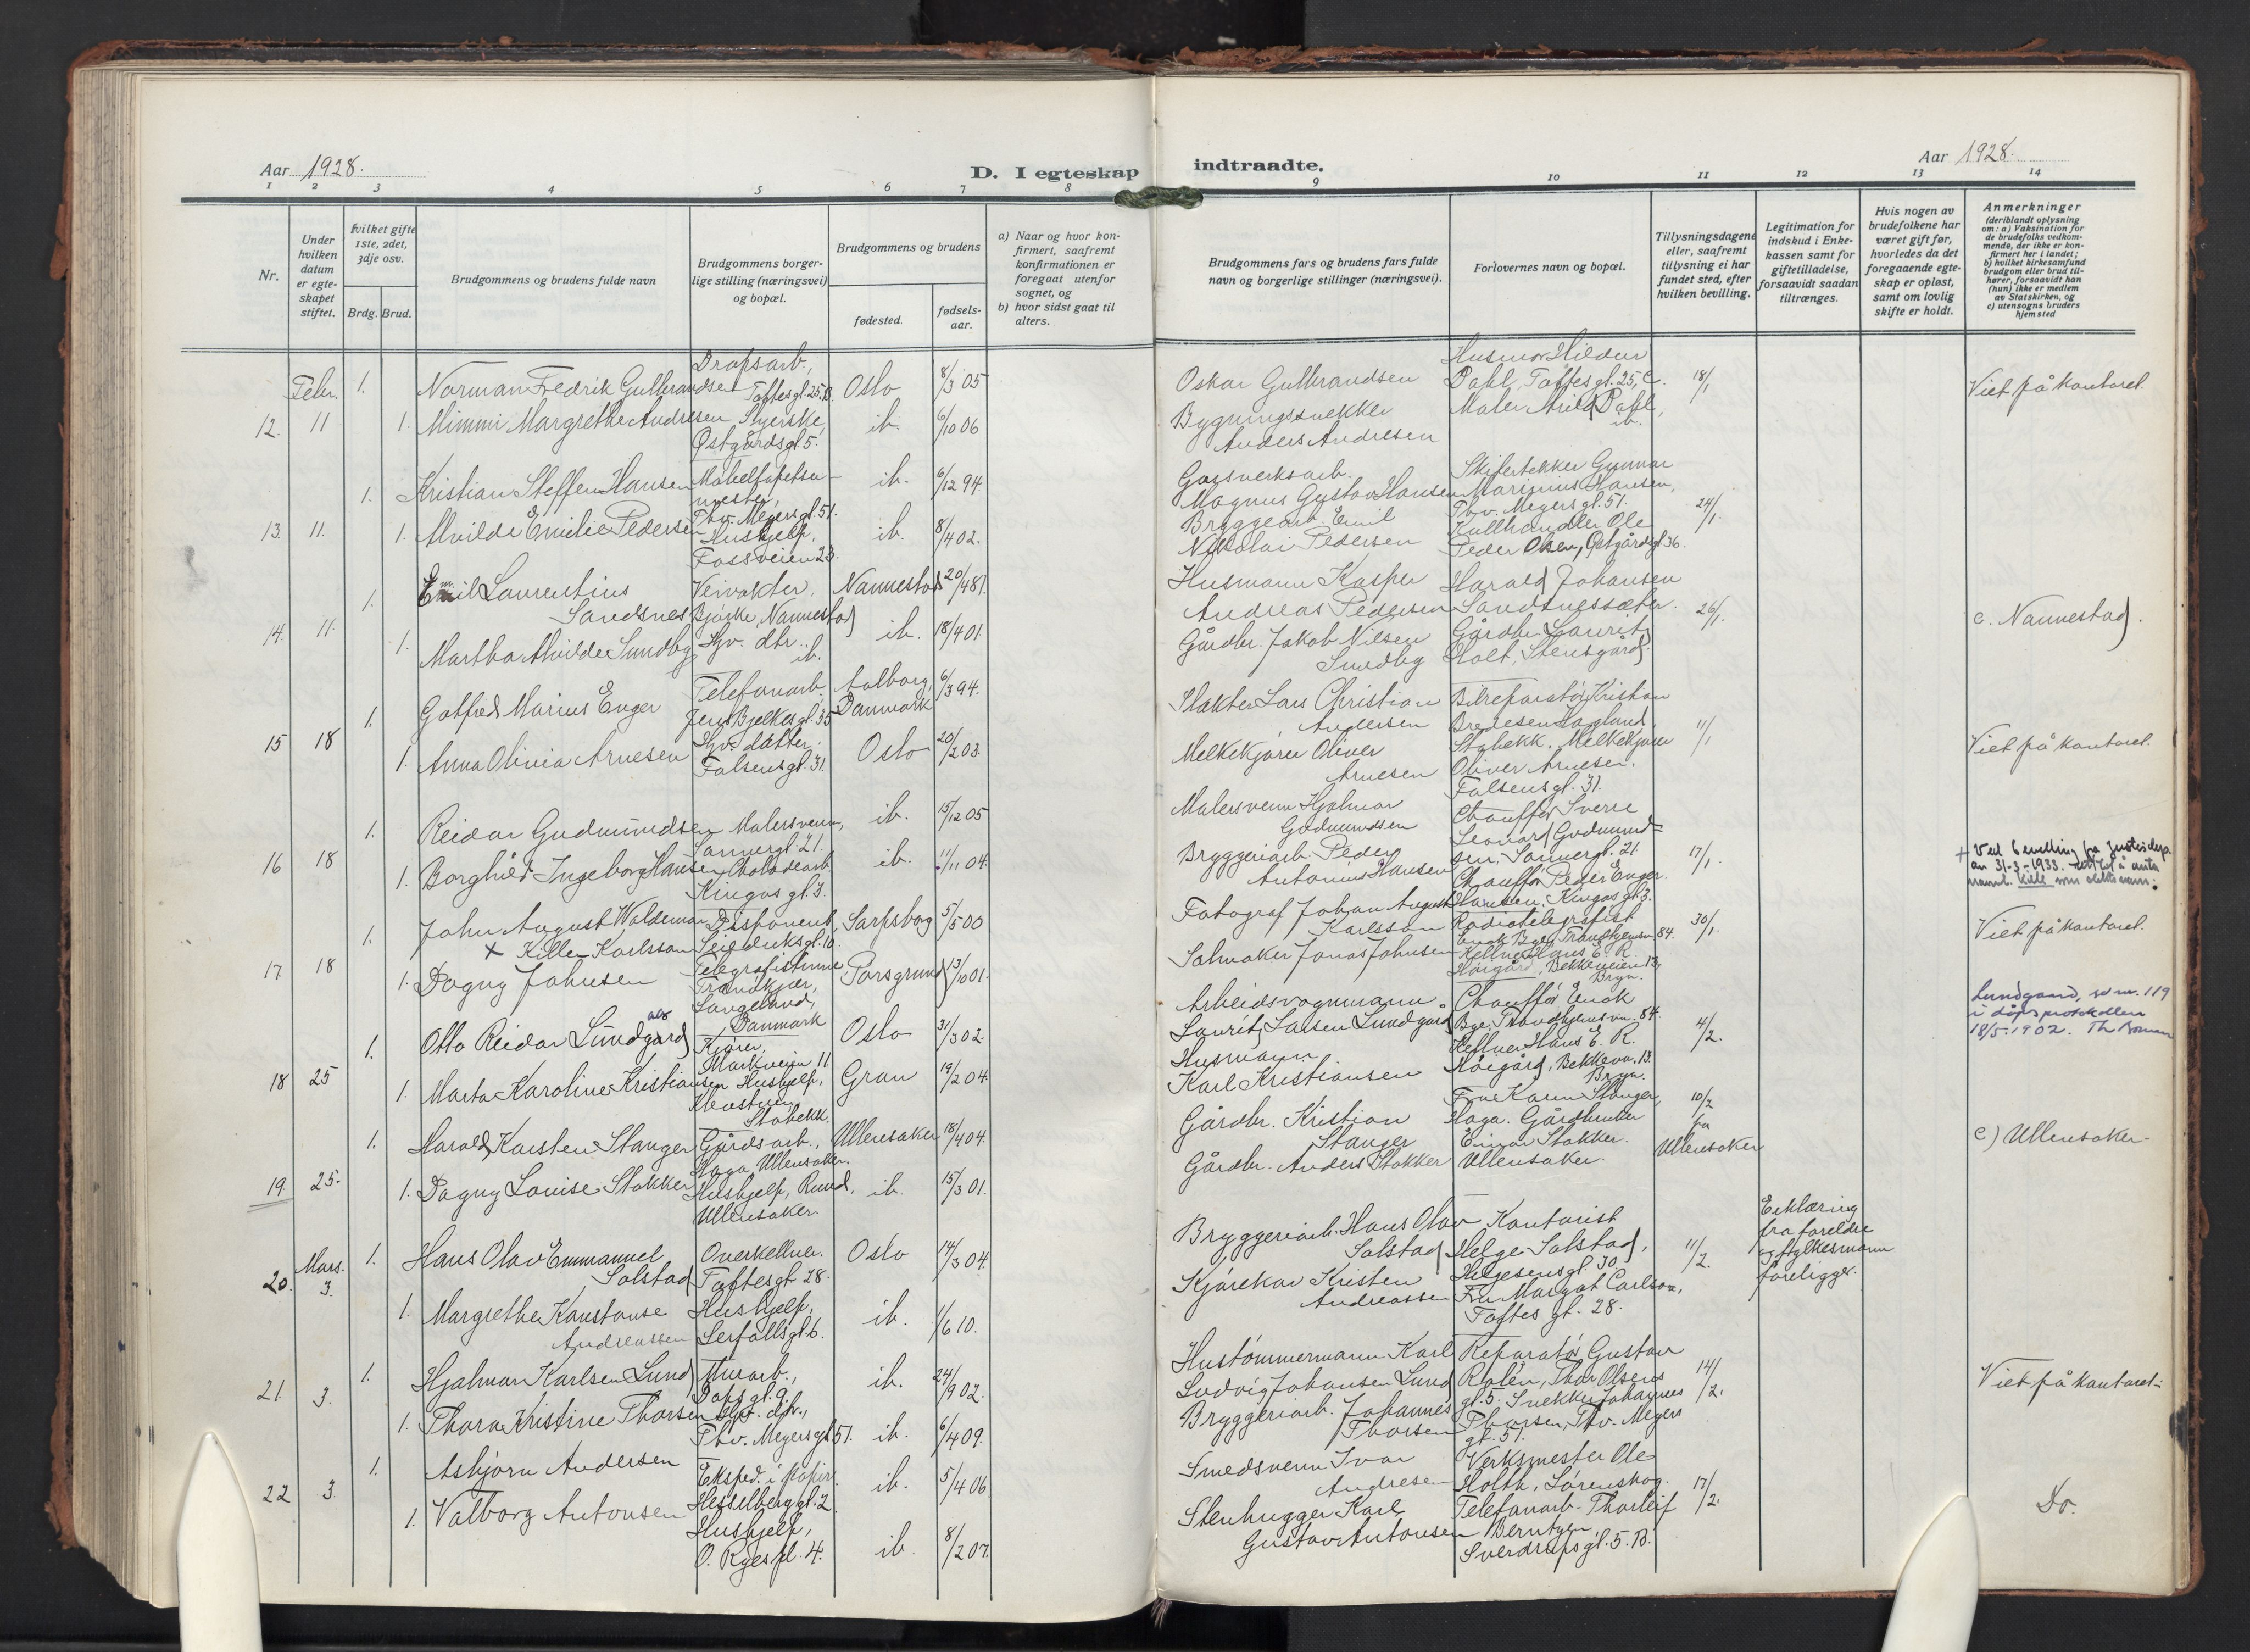 Aar 1928.
D. I egteskap
indtraadte.
Aar 1928.
1 2 3 4 5 6 7 8 9 10 11 12 13 14
Nr.
Under hvilken datum er egteskapet stiftet.
hvilket gifte 1ste, 2det, 3dje osv.
Brdg. Brud.
Brudgommens og brudens fulde navn
Brudgommens borgerlige stilling (næringsvei) og bopæl.
Brudgommens og brudens
fødested.
fødselsaar.
a) Naar og hvor konfirmert, saafremt konfirmationen er foregaat utenfor sognet, og
b) hvor sidst gaat til alters.
Brudgommens fars og brudens fars fulde navn og borgerlige stillinger (næringsvei).
Forlovernes navn og bopæl.
Tillysningsdagene eller, saafremt tillysning ei har fundet sted, efter hvilken bevilling.
Legitimation for indskud i Enkekassen samt for giftetilladelse, forsaavidt saadan tiltrænges.
Hvis nogen av brudefolkene har været gift før, hvorledes da det foregaaende egteskap er opløst, samt om lovlig skifte er holdt.
Anmerkninger
(deriblandt oplysning om: a) Vaksination for de brudefolks vedkommende, der ikke er konfirmert her i landet; b) hvilket kirkesamfund brudgom eller brud tilhører, forsaavidt han (hun) ikke er medlem av Statskirken, og c) utensogns bruders hjemsted
12. Febr. 11
1. Norman Fredrik Gulbrandsen
Dropsarb., Toftesgt. 25, B.
Oslo 8/3 05
Oskar Gulbrandsen
Husmor Hildur Dahl, Toftesgt. 25, C.
18/1
Viet på kontoret.
1. Mimmi Margrethe Andresen
Syerske, Østgårdsgt 5.
ib. 6/10 06
Bygningssnekker Anders Andresen
Maler Arild Dahl, ib.
13. 11.
1. Kristian Steffen Hansen
Møbeltapetsermester, Thv. Meyersgt. 51.
ib. 6/12 94.
Gassverksarb. Magnus Gustav Hansen
Skifertekker Gunnar Marinius Hansen, Thv. Meyersgt. 51.
24/1.
1. Alvilde Emilie Pedersen
Hushjelp, Fossveien 23.
ib. 8/4 02.
Bryggearb. Emil Nikolai Pedersen
Kullhandler Ole Peder Olsen, Østgårdsgt. 36.
14. 11.
1. Emil Laurentius Sandsnes
Veivokter, Bjørke, Nannestad
Nannestad 20/4 81.
Husmann Kasper Andreas Pedersen
Harald Johansen Sandsnessæter.
26/1.
c. Nannestad.
1. Martha Alvilde Smedbg
Hjv. dtr. ib.
ib. 18/4 01.
Gårdbr. Jakob Nilsen Smedbg
Gårdbr. Laurits Holt, Stensgård.
15 18
1. Gotfred Marius Enger
Telefonarb. Jens Bjelkesgt. 35
Aalborg, Danmark 6/3 94.
Slakter Lars Christian Andersen
Bilreparatør Kristian Bredesen Hagland, Stabekk.
11/1
Viet på kontoret.
1. Anna Olivia Arnesen
Hjv. datter. Falsensgt. 31.
Oslo 20/2 03.
Melkekjører Oliver Arnesen
Melkekjører Oliver Arnesen. Falsensgt. 31.
16 18
1. Reidar Gudmundsen
Malersvenn, Sannergt. 21.
ib. 15/12 05
Malersvenn Hjalmar Gudmundsen
Chauffør Sverre Leonard Gudmundsen, Sannergt. 21.
17/1.
1. Borghild Ingeborg Hansen
Chokoladearb. Kingosgt. 3.
ib. 11/11 04.
Bryggeriarb. Peder Antonius Hansen
Chauffør Peder Enger Hansen, Kingosgt. 3.
+ Ved bevilling fra Justisdep. av 31-3-1933. rett til å anta navnet Kille som slektsnavn.
17. 18
1. John August Waldemar x Kille Karlsson
Disponent, Seilduksgt. 10.
Sarpsborg 5/5 00
Fotograf Johan August Karlsson
Radiotelegrafist Enok Bye, Trondhjemsvn 84.
30/1.
Viet på kontoret.
1. Dagny Johnsen
Telegrafistinne Trandkjær, Langeland, Danmark
Porsgrund 13/10 01.
Salmaker Jonas Johnsen
Kellner Hans E. R. Høigård, Bekkeveien 13, Bryn.
18 25
1. Otto Reidar Lundgård
Kjører, Markveien 11
Oslo 31/3 02.
Arbeidsvognmann Laurits Larsen Lundgård
Chauffør Enok Bye, Trondhjemsvn. 84.
4/2.
Lundgaard, se nr. 119 i dåpsprotokollen 18/5-1902.
1. Marta Karoline Kristiansen
Hushjelp, Stabekk.
Gran 19/2 04.
Husmann Karl Kristiansen
Kellner Hans E. R. Høigård, Bekkevn. 13. Bryn.
19. 25.
1. Harald Karsten Stanger
Gårdsarb., Haga, Ullensaker.
Ullensaker 18/4 04.
Gårdbr. Kristian Stanger
Fru Karen Stanger, Haga.
10/2 fra Ullensaker
c) Ullensaker.
1. Dagny Louise Stokker
Hushjelp, Rund, Ullensaker.
ib. 15/3 01.
Gårdbr. Anders Stokker
Gårdbruker Einar Stokker. Ullensaker.
20. Mars. 3.
1. Hans Olav Emmanuel Solstad
Overkellner. Toftesgt. 28.
Oslo 14/3 04.
Bryggeriarb. Hans Olav Solstad
Kontorist Helge Solstad, Helgesensgt. 30.
11/2.
Erklæring fra foreldre og fylkesmann foreligger.
1. Margrethe Konstanse Andreassen
Hushjelp, Seilduksgt. 6.
ib. 1/6 10.
Kjørekar Kristen Andreassen
Fru Margot Carlson, Toftes gt. 28.
21. 3.
1. Hjalmar Karlsen Lund
Murarb., Dopsgt. 9.
ib. 24/9 02.
Hustømmermann Karl Ludvig Johansen Lund
Reparatør Gustav Rolén, Thor Olsens gt. 5.
14/2.
Viet på kontoret.
1. Thora Kristine Thorsen
Hjv. dtr., Thv. Meyersgt 51.
ib. 6/4 09.
Bryggeriarb. Johannes Thorsen
Snekker Johannes Thorsen, Thv. Meyers gt. 51.
22 3.
1. Asbjørn Andersen
Eksped. i papir. Hesselberggt. 2
ib. 5/4 06
Smedsvenn Ivar Andresen
Verksmester Ole Holth, Lørenskog.
17/2.
Do.
1. Valborg Antonsen
Hushjelp, O. Ryes pl. 4.
ib. 8/2 07.
Stenhugger Karl Gustav Antonsen
Telefonarb. Thorleif Berntzen Sverdrupsgt. 5. B.